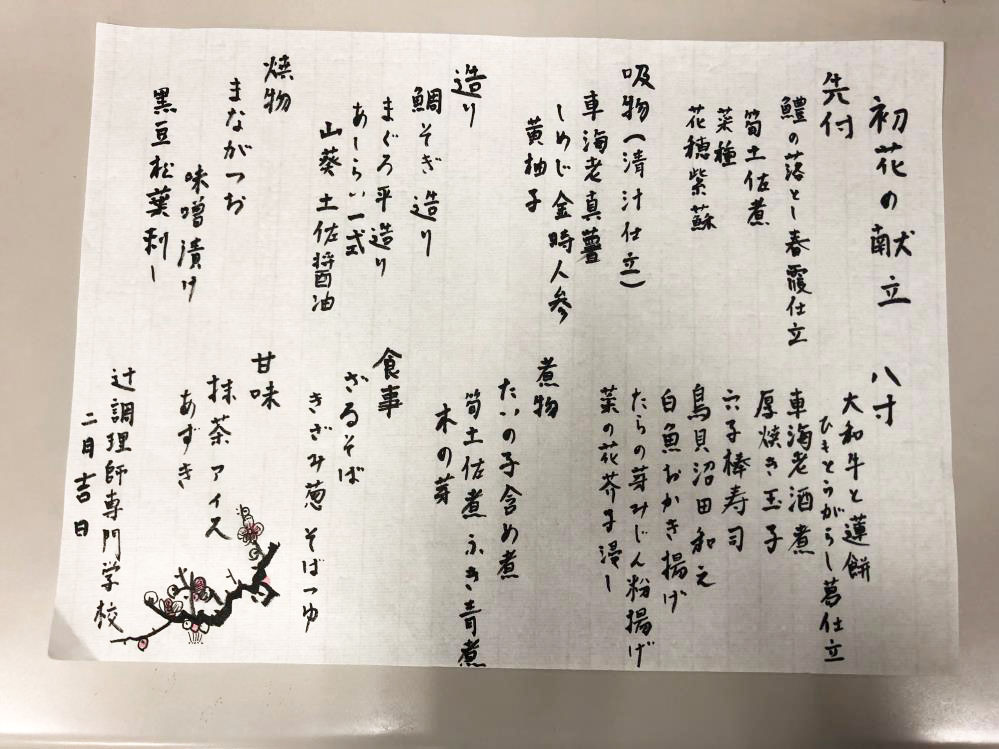 初花の献立
先付
鱧の落とし春霞仕立
筍土佐煮
菜種
花穂紫蘇
吸物(清汁仕立)
車海老真薯
しめじ金時人参
黄柚子
造り
鯛そぎ造り
まぐろ平造り
あしらい一式
山葵 土佐醤油
焼物
まながつお
味噌漬け
黒豆松葉刺し
八寸
大和牛と蓮餅
ひもとうがらし葛仕立
車海老酒煮
厚焼き玉子
穴子棒寿司
鳥貝沼田和え
白魚おかき揚げ
たらの芽みじん粉揚げ
菜の花芥子浸し
煮物
たいの子含め煮
筍土佐煮 ふき青煮
木の芽
食事
ざるそば
きざみ葱 そばつゆ
甘味
抹茶アイス
あずき
辻調理師専門学校
二月吉日